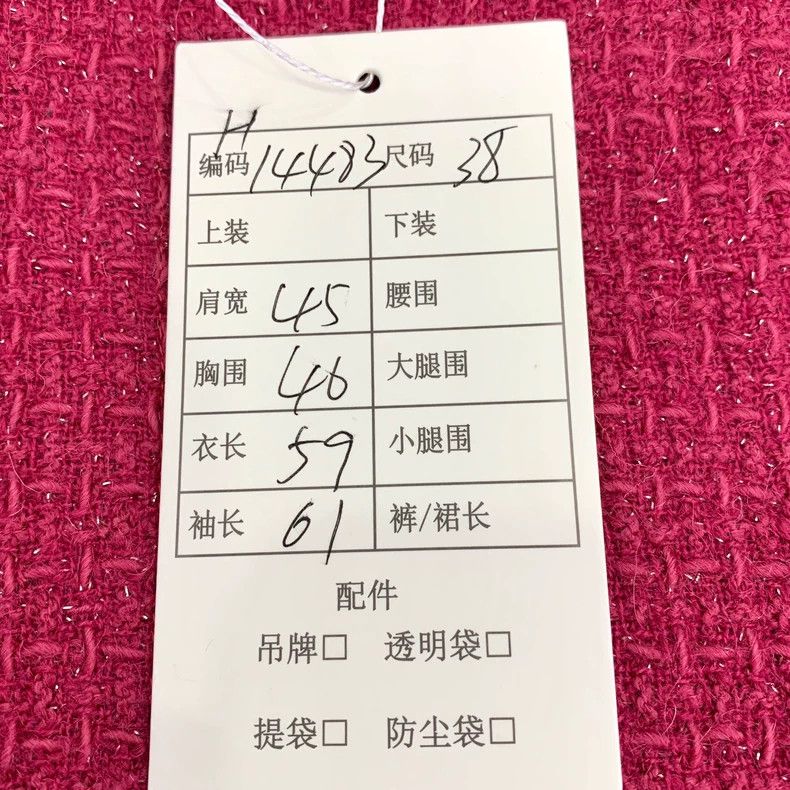 H
编码 14483 尺码 38
上装 下装
肩宽 45 腰围
胸围 46 大腿围
衣长 59 小腿围
袖长 61 裤/裙长
配件
吊牌□ 透明袋□
提袋□ 防尘袋□